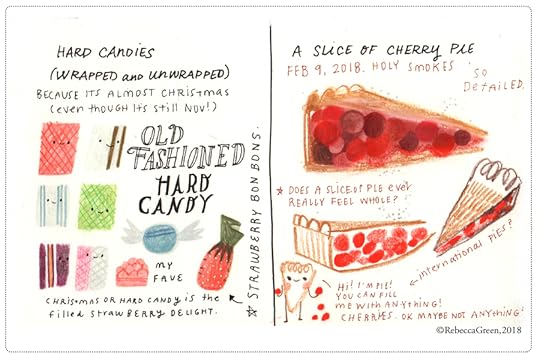 HARD CANDIES
(WRAPPED and UNWRAPPED)
BECAUSE ITS ALMOST CHRISTMAS
(even though It's still NOV!)
OLD
FASHIONED
HARD
CANDY
MY
FAVE
CHRISTMAS OR HARD CANDY is the
filled STRAWBERRY DELIGHT.
☆ STRAWBERRY BON BONS.
A SLICE OF CHERRY PIE
FEB 9, 2018. HOLY SMOKES
'SO
DETAILED.
★ DOES A SLICE of PIE ever
REALLY FEEL WHOLE?
international PIES?
Hi! I'M PIE!
YOU CAN FILL
ME WITH ANYTHING!
CHERRIES. OK MAYBE NOT ANYTHING!
©RebeccaGreen,2018